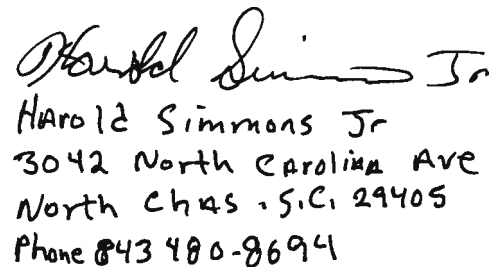 Harold Simmons Jr
Harold Simmons Jr
3042 North Carolina Ave
North Chas. S.C. 29405
Phone 843 480-8694